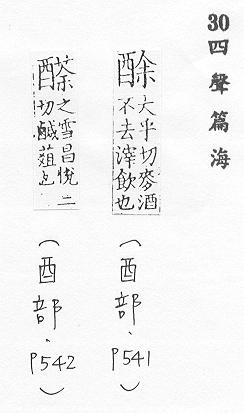 30 四聲篇海
酴 大乎切麥酒
不去滓飲也
（酉部．P541）
之雪昌悅二
切鹹葅也
（酉部．P542）